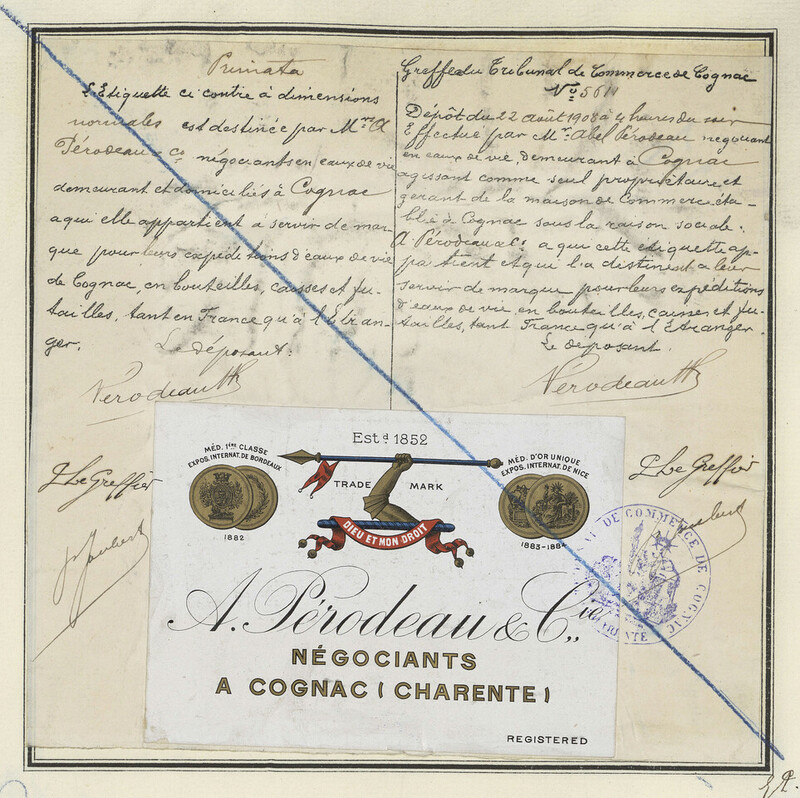 Primata
L'Etiquette ci contre à dimensions
normales est destinée par Mr A
Pérodeau & Co négociants en eaux de vie
demeurant et domiciliés à Cognac
a qui elle appartient a servir de mar-
que pour leurs expéditions d'eaux de vie
de Cognac, en bouteilles, caisses et fu-
tailles, tant en France qu'à l'Etran-
ger.
Le déposant.
Pérodeau
P. Le Greffier
Greffe du Tribunal de Commerce de Cognac
No 5611
Dépôt du 22 août 1908 à 4 heures du soir
Effectué par Mr. Abel Pérodeau négociant
en eaux de vie demeurant à Cognac
agissant comme seul propriétaire et
gérant de la maison de Commerce éta-
blie à Cognac sous la raison sociale.
A Pérodeau & Co a qui cette etiquette ap-
partient et qui l'a distinent a leur
servir de marque pour leurs expéditions
d'eaux de vie en bouteilles, caisses et fu-
tailles, tant France qu'à l'Etranger.
Le déposant.
Pérodeau
P. Le Greffier
Estd 1852
MÉD. 1ère CLASSE
EXPOS. INTERNAT. DE BORDEAUX
1882
TRADE MARK
DIEU ET MON DROIT
MÉD. D'OR UNIQUE
EXPOS. INTERNAT. DE NICE
1883-1884
A. Pérodeau & Cie
NÉGOCIANTS
A COGNAC (CHARENTE)
REGISTERED
DE COMMERCE DE COGNAC